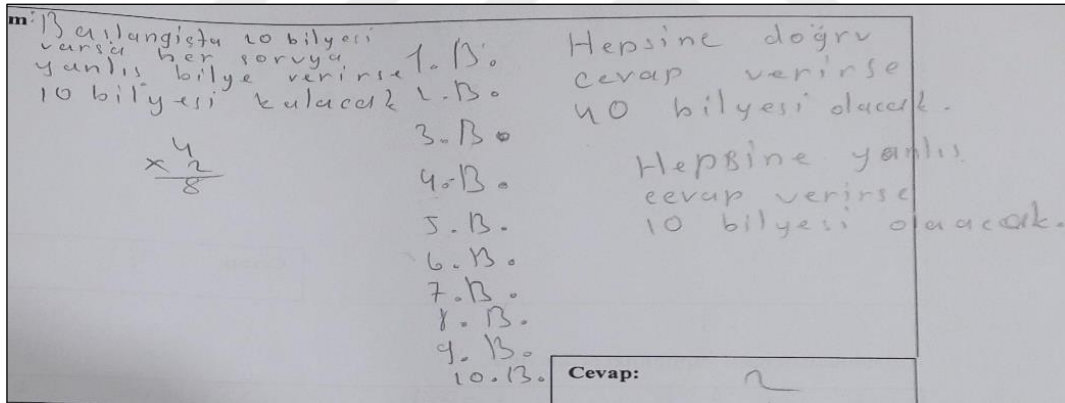 m: Başlangıçta 20 bilyesi
varsa her soruya
yanlış bilye verirse
10 bilyesi kalacak
4
x 2
8
1. B.
2. B.
3. B.
4. B.
5. B.
6. B.
7. B.
8. B.
9. B.
10. B.
Hepsine doğru
cevap verirse
40 bilyesi olacak.
Hepsine yanlış
cevap verirse
10 bilyesi olacak.
Cevap: 2